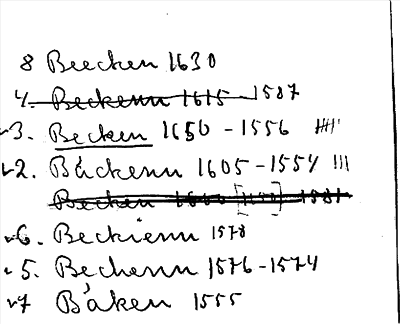 8 Beecken 1630
4. Beckenn 1615 1587
3. Becken 1650 - 1556
2. Báckenn 1605 - 1554
Becken
6. Beckienn 1578
5. Bechenn 1576 - 1574
7 Båken 1555